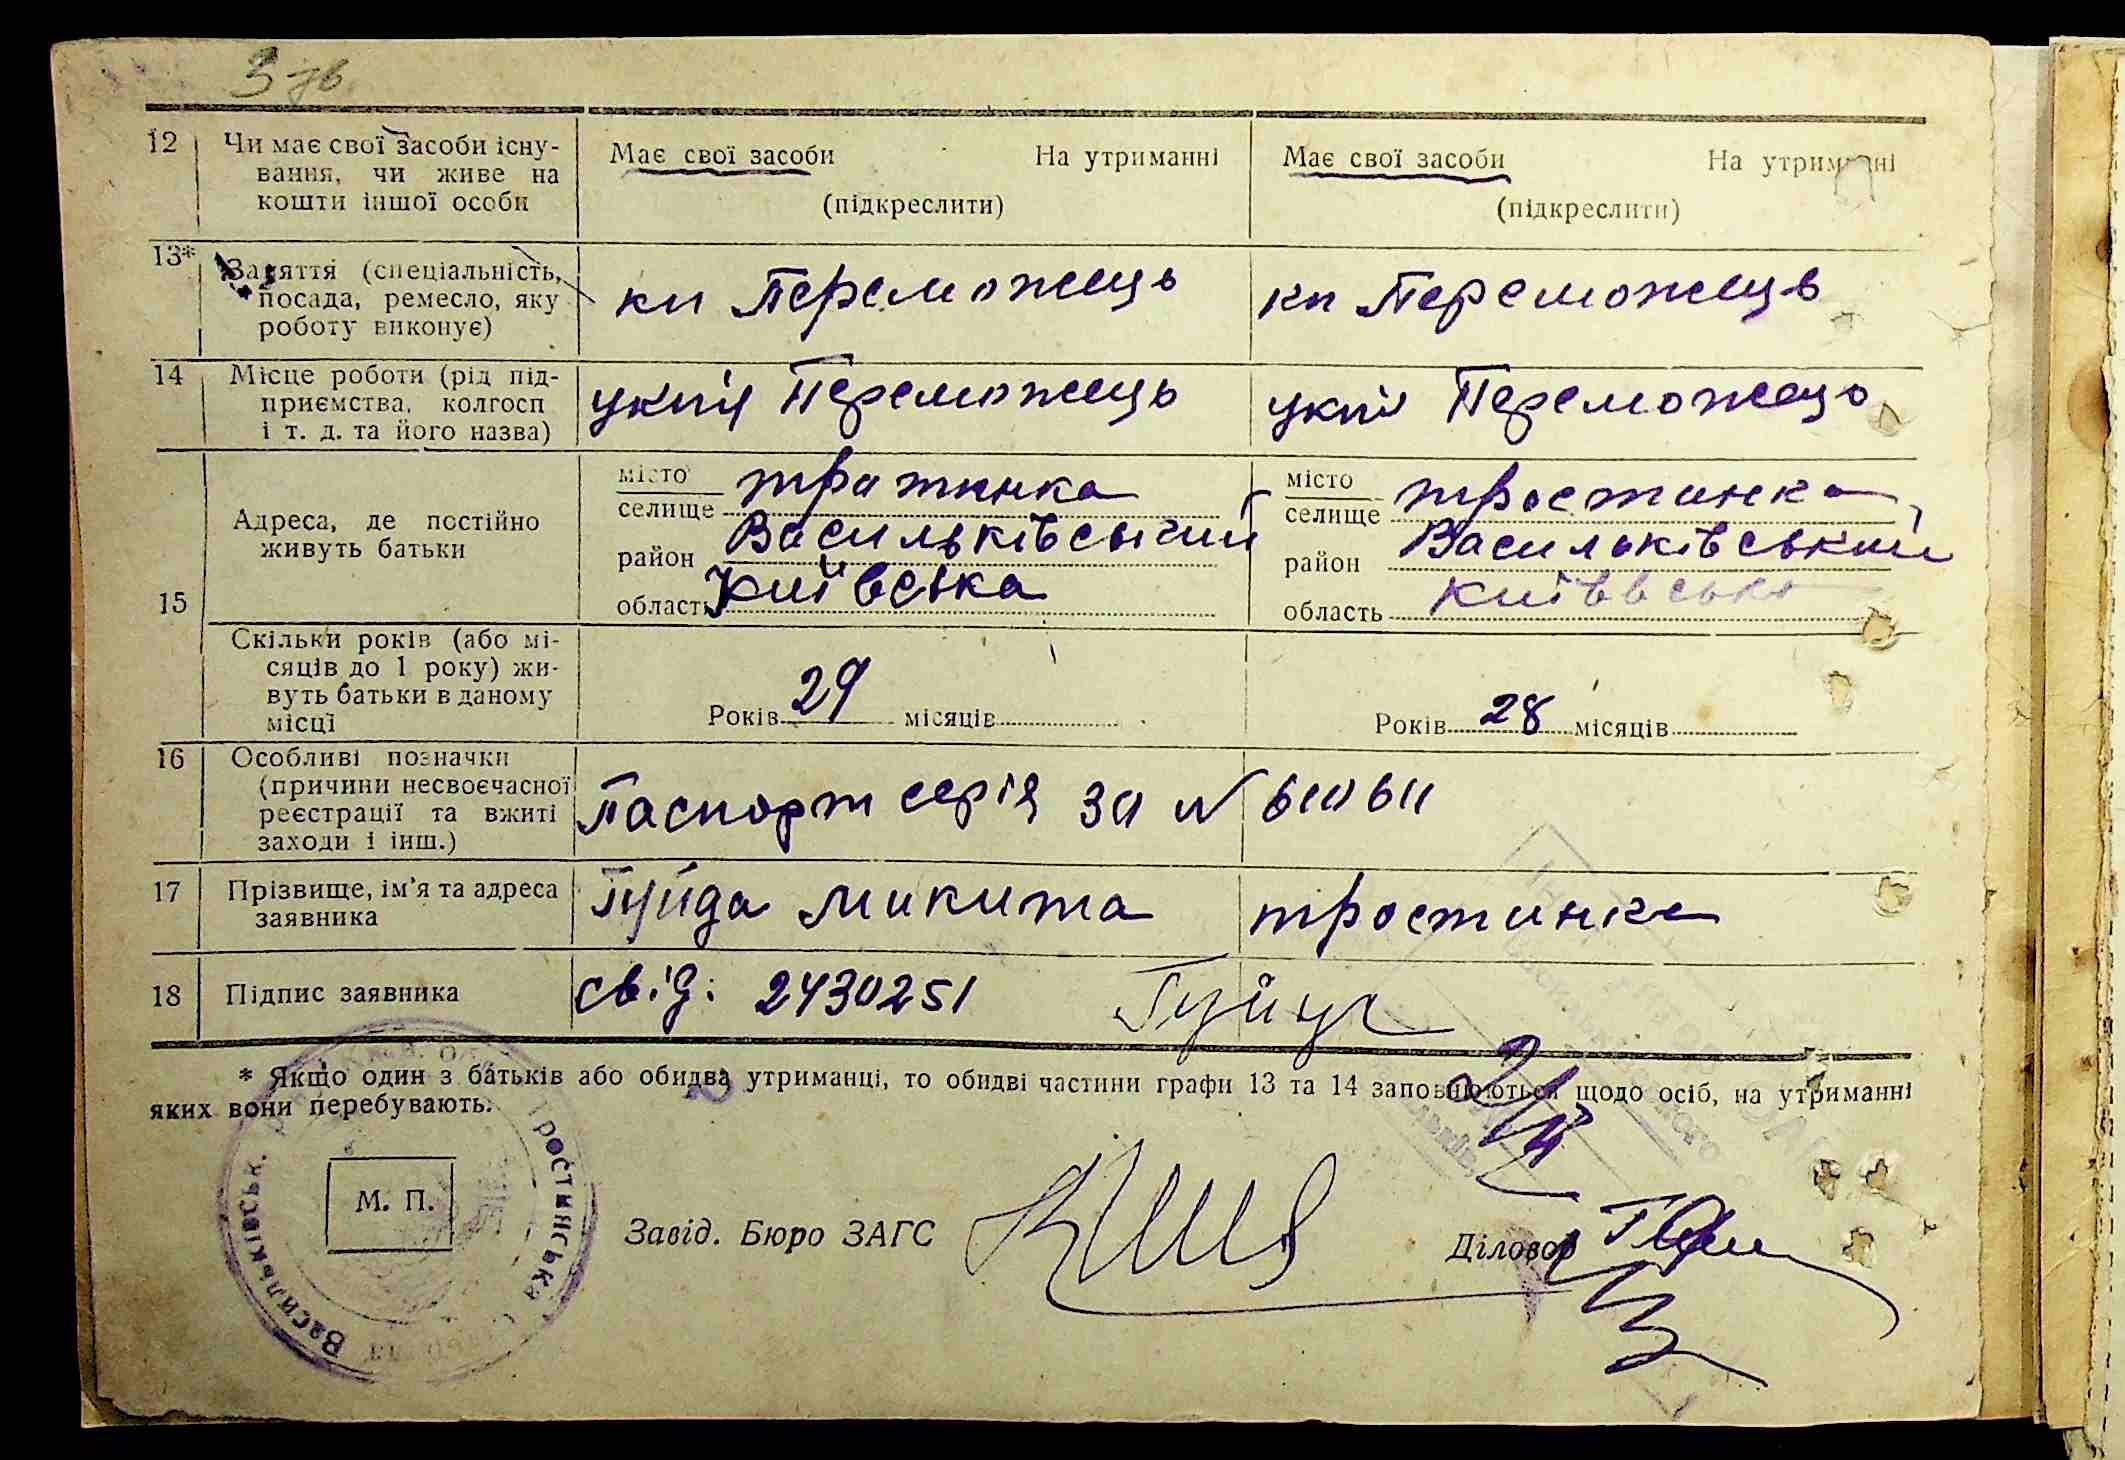 12 Чи має свої засоби існу- Має свої засоби На утриманні Має свої засоби На утриманні
вання, чи живе на
кошти іншої особи (підкреслити) (підкреслити)
13* Заняття (спеціальність,
посада, ремесло, яку кп Переможець кп Переможець
роботу виконує)
14 Місце роботи (рід під-
приємства, колгосп укпії Переможець укпії Переможець
і т. д. та його назва)
15 Адреса, де постійно
живуть батьки
місто
селище тратинка
район Васильківський
область Київська
місто
селище тростинка
район Васильківський
область Київвська
Скільки років (або мі-
сяців до 1 року) жи-
вуть батьки в даному
місці
Років 29 місяців Років 28 місяців
16 Особливі позначки
(причини несвоєчасної
реєстрації та вжиті Паспорт серія ЗП №
заходи і інш.)
17 Прізвище, ім'я та адреса Гуйда Микита тростинка
заявника
18 Підпис заявника свід: 2430251
* Якщо один з батьків або обидва утриманці, то обидві частини графи 13 та 14 заповнюються щодо осіб, на утриманні
яких вони перебувають.
М. П.
Завід. Бюро ЗАГС Діловод
Васильківськ. Тростинська